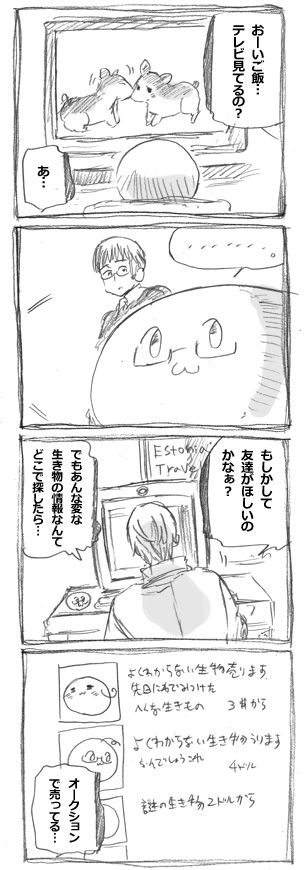 おーいご飯…
テレビ見てるの？
あ…
もしかして
友達がほしいの
かなぁ？
Estonia
Trave
でもあんな変な
生き物の情報なんて
どこで探したら…
よくわからない生物売ります
先日にわでみつけた
へんな生きもの 3＄から
よくわからない生き物うります
なんでしょうこれ
4ドル
謎の生き物2ドルから
オークション
で売ってる…